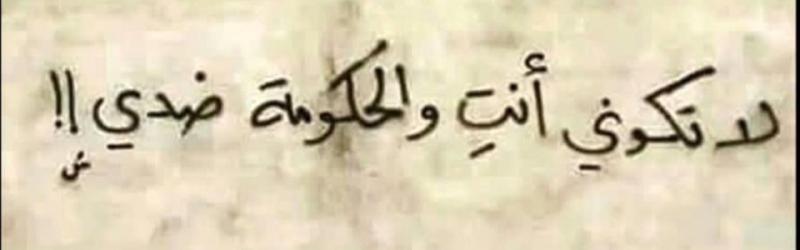 لا تكوني أنتِ والحكومة ضدي !!
ش